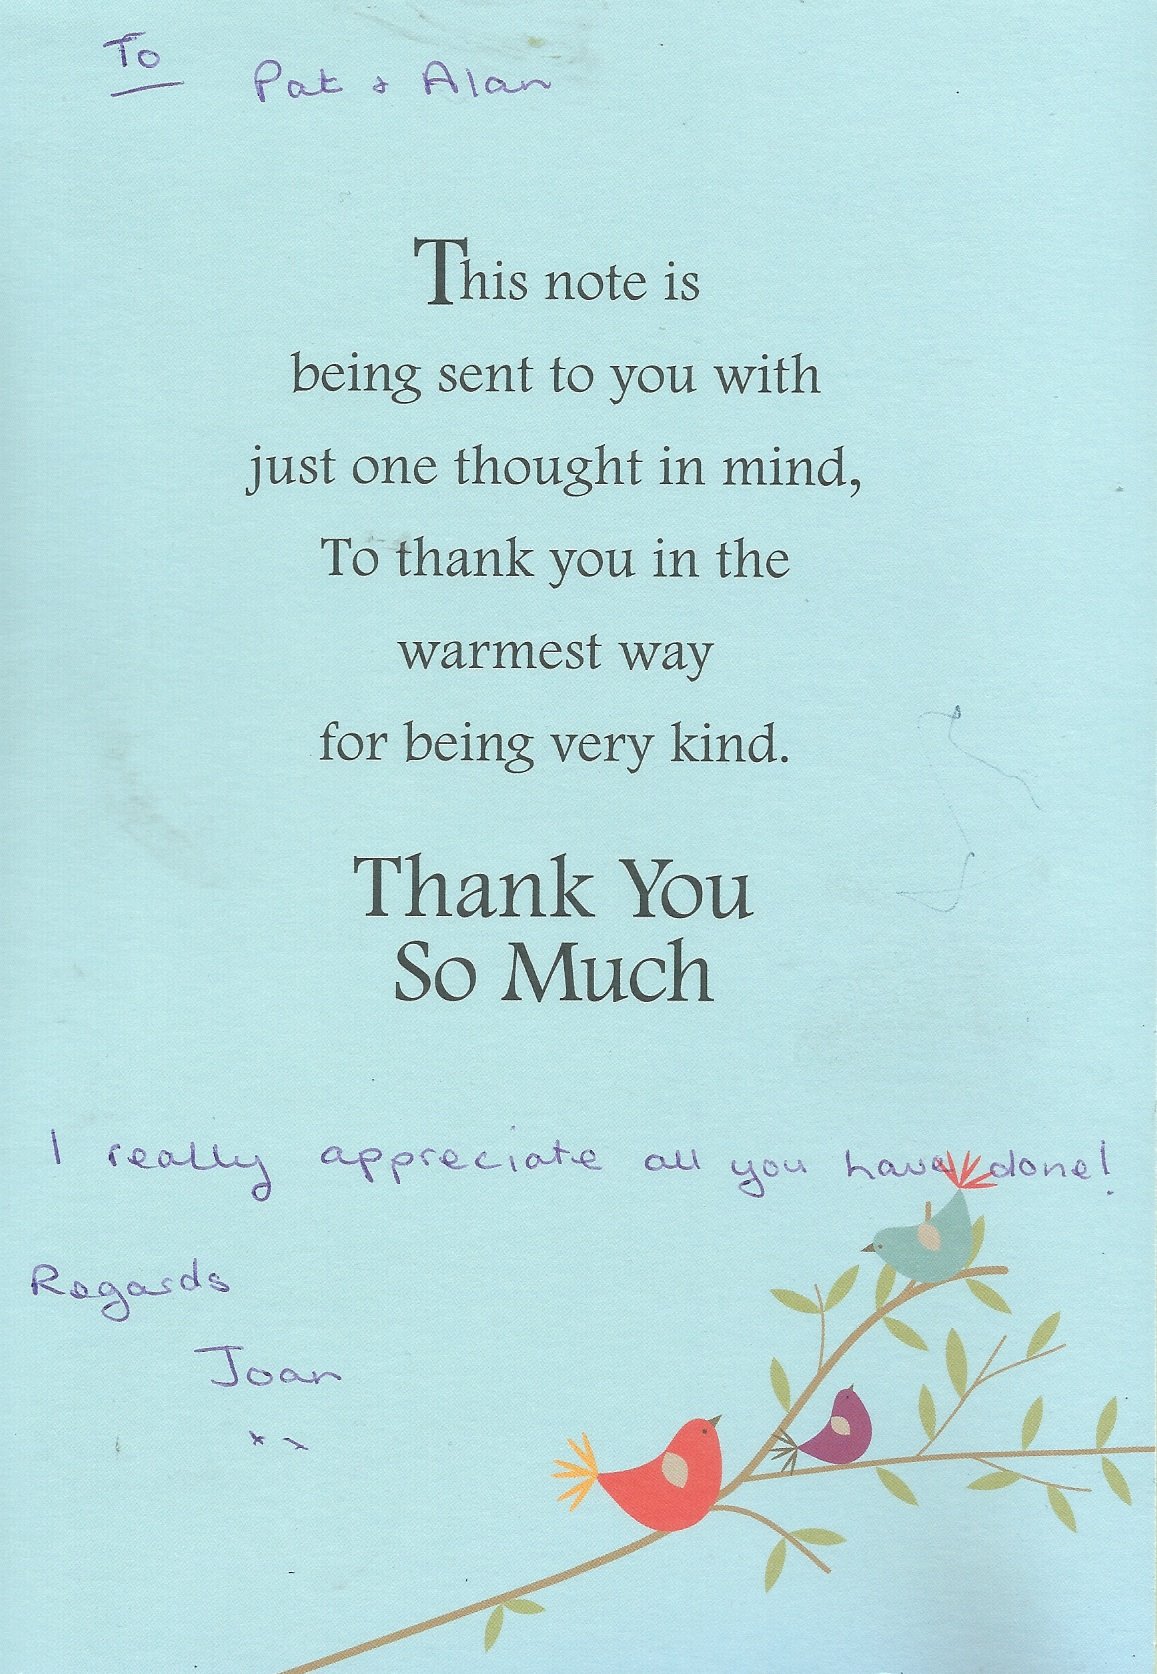 To
Pat + Alan
This note is
being sent to you with
just one thought in mind,
To thank you in the
warmest way
for being very kind.
Thank You
So Much
I really appreciate all you have done!
Regards
Joan
x x